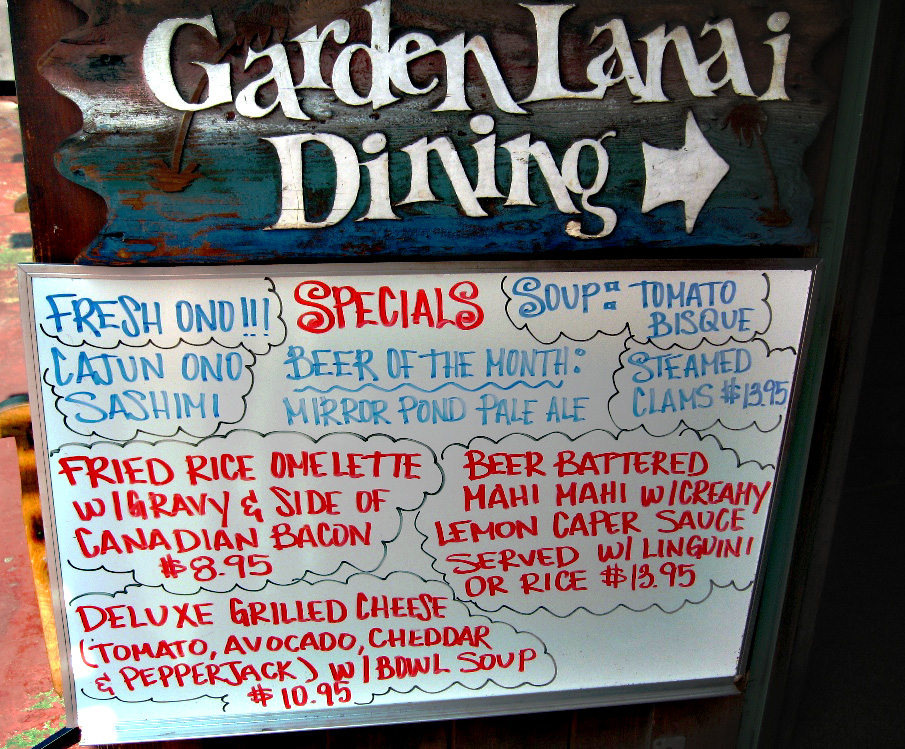 Garden Lanai
Dining
FRESH ONO!!!
SPECIALS
SOUP: TOMATO
BISQUE
CAJUN ONO
SASHIMI
BEER OF THE MONTH:
MIRROR POND PALE ALE
STEAMED
CLAMS $13.95
FRIED RICE OMELETTE
W/GRAVY & SIDE OF
CANADIAN BACON
$8.95
BEER BATTERED
MAHI MAHI W/CREAMY
LEMON CAPER SAUCE
SERVED W/ LINGUINI
OR RICE $13.95
DELUXE GRILLED CHEESE
(TOMATO, AVOCADO, CHEDDAR
& PEPPERJACK) W/BOWL SOUP
$10.95